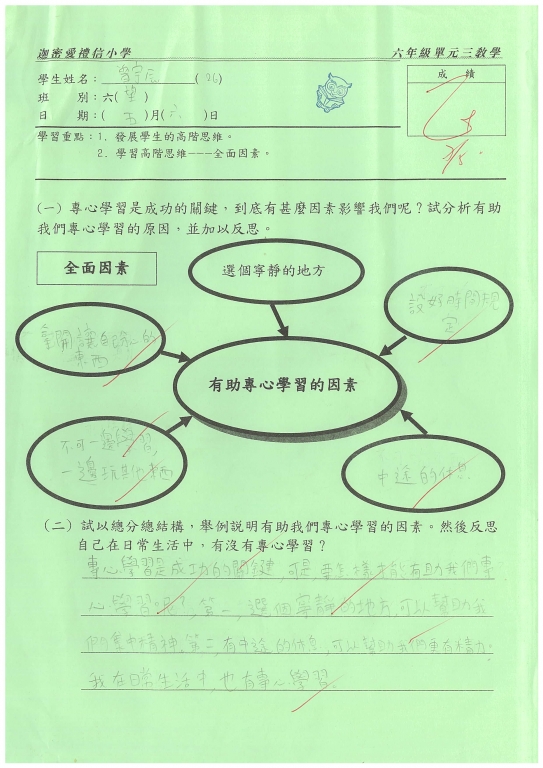 迦密愛禮信小學
六年級單元三教學
學生姓名：(26)
成績
班　　別：六(望)
日　　期：(五)月(六)日
學習重點：1. 發展學生的高階思維。
2. 學習高階思維---全面因素。
(一) 專心學習是成功的關鍵，到底有甚麼因素影響我們呢？試分析有助
我們專心學習的原因，並加以反思。
全面因素
選個寧靜的地方
設好時間規
定
東西
有助專心學習的因素
不可一邊學習，
一邊玩其他東西
中途的休息
(二) 試以總分總結構，舉例說明有助我們專心學習的因素。然後反思
自己在日常生活中，有沒有專心學習？
專心學習是成功的關鍵，可是，要怎樣才能有助我們專
心學習呢？第一，選個寧靜的地方，可以幫助我
們集中精神，第二，有中途的休息，可以幫助我們更有精力。
我在日常生活中，也有專心學習。